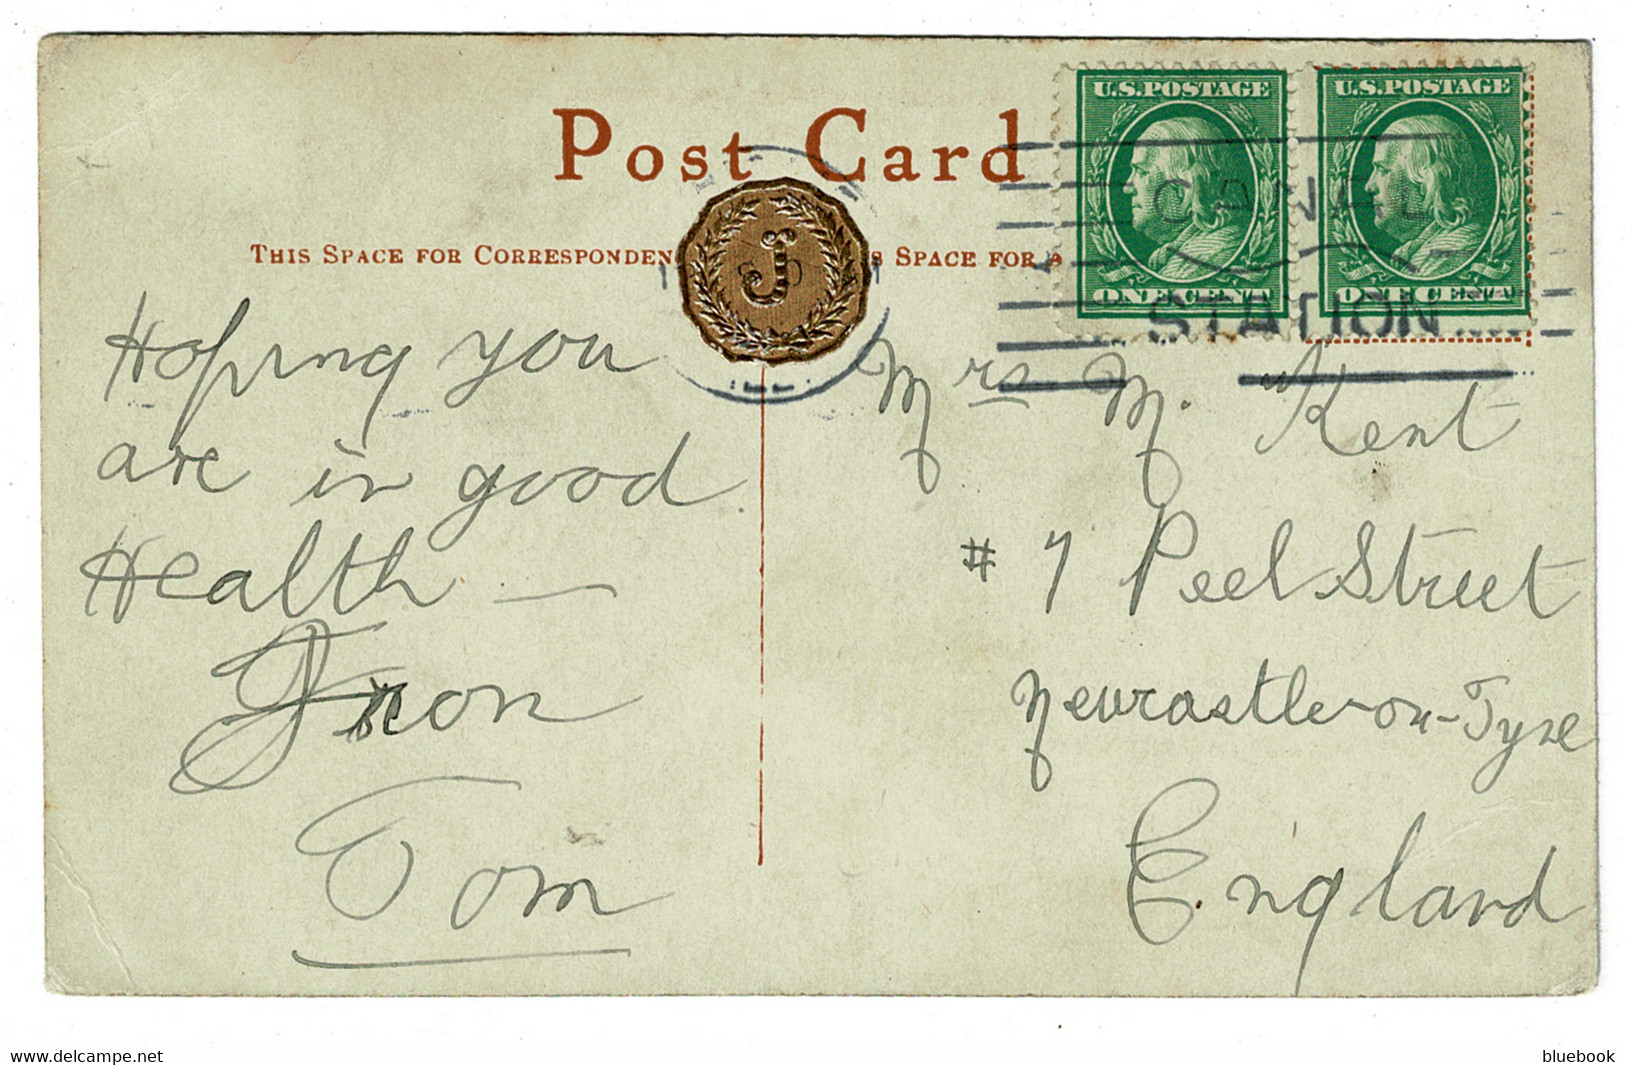 Post Card
THIS SPACE FOR CORRESPONDEN
S SPACE FOR A
J
U.S.POSTAGE
ONE CENT
U.S.POSTAGE
ONE CENT
CANAL
STATION
Hoping you
are in good
Health —
From
Tom
Mrs M. Kent
# 7 Peel Street
Newcastle-on-Tyne
England
www.delcampe.net
bluebook